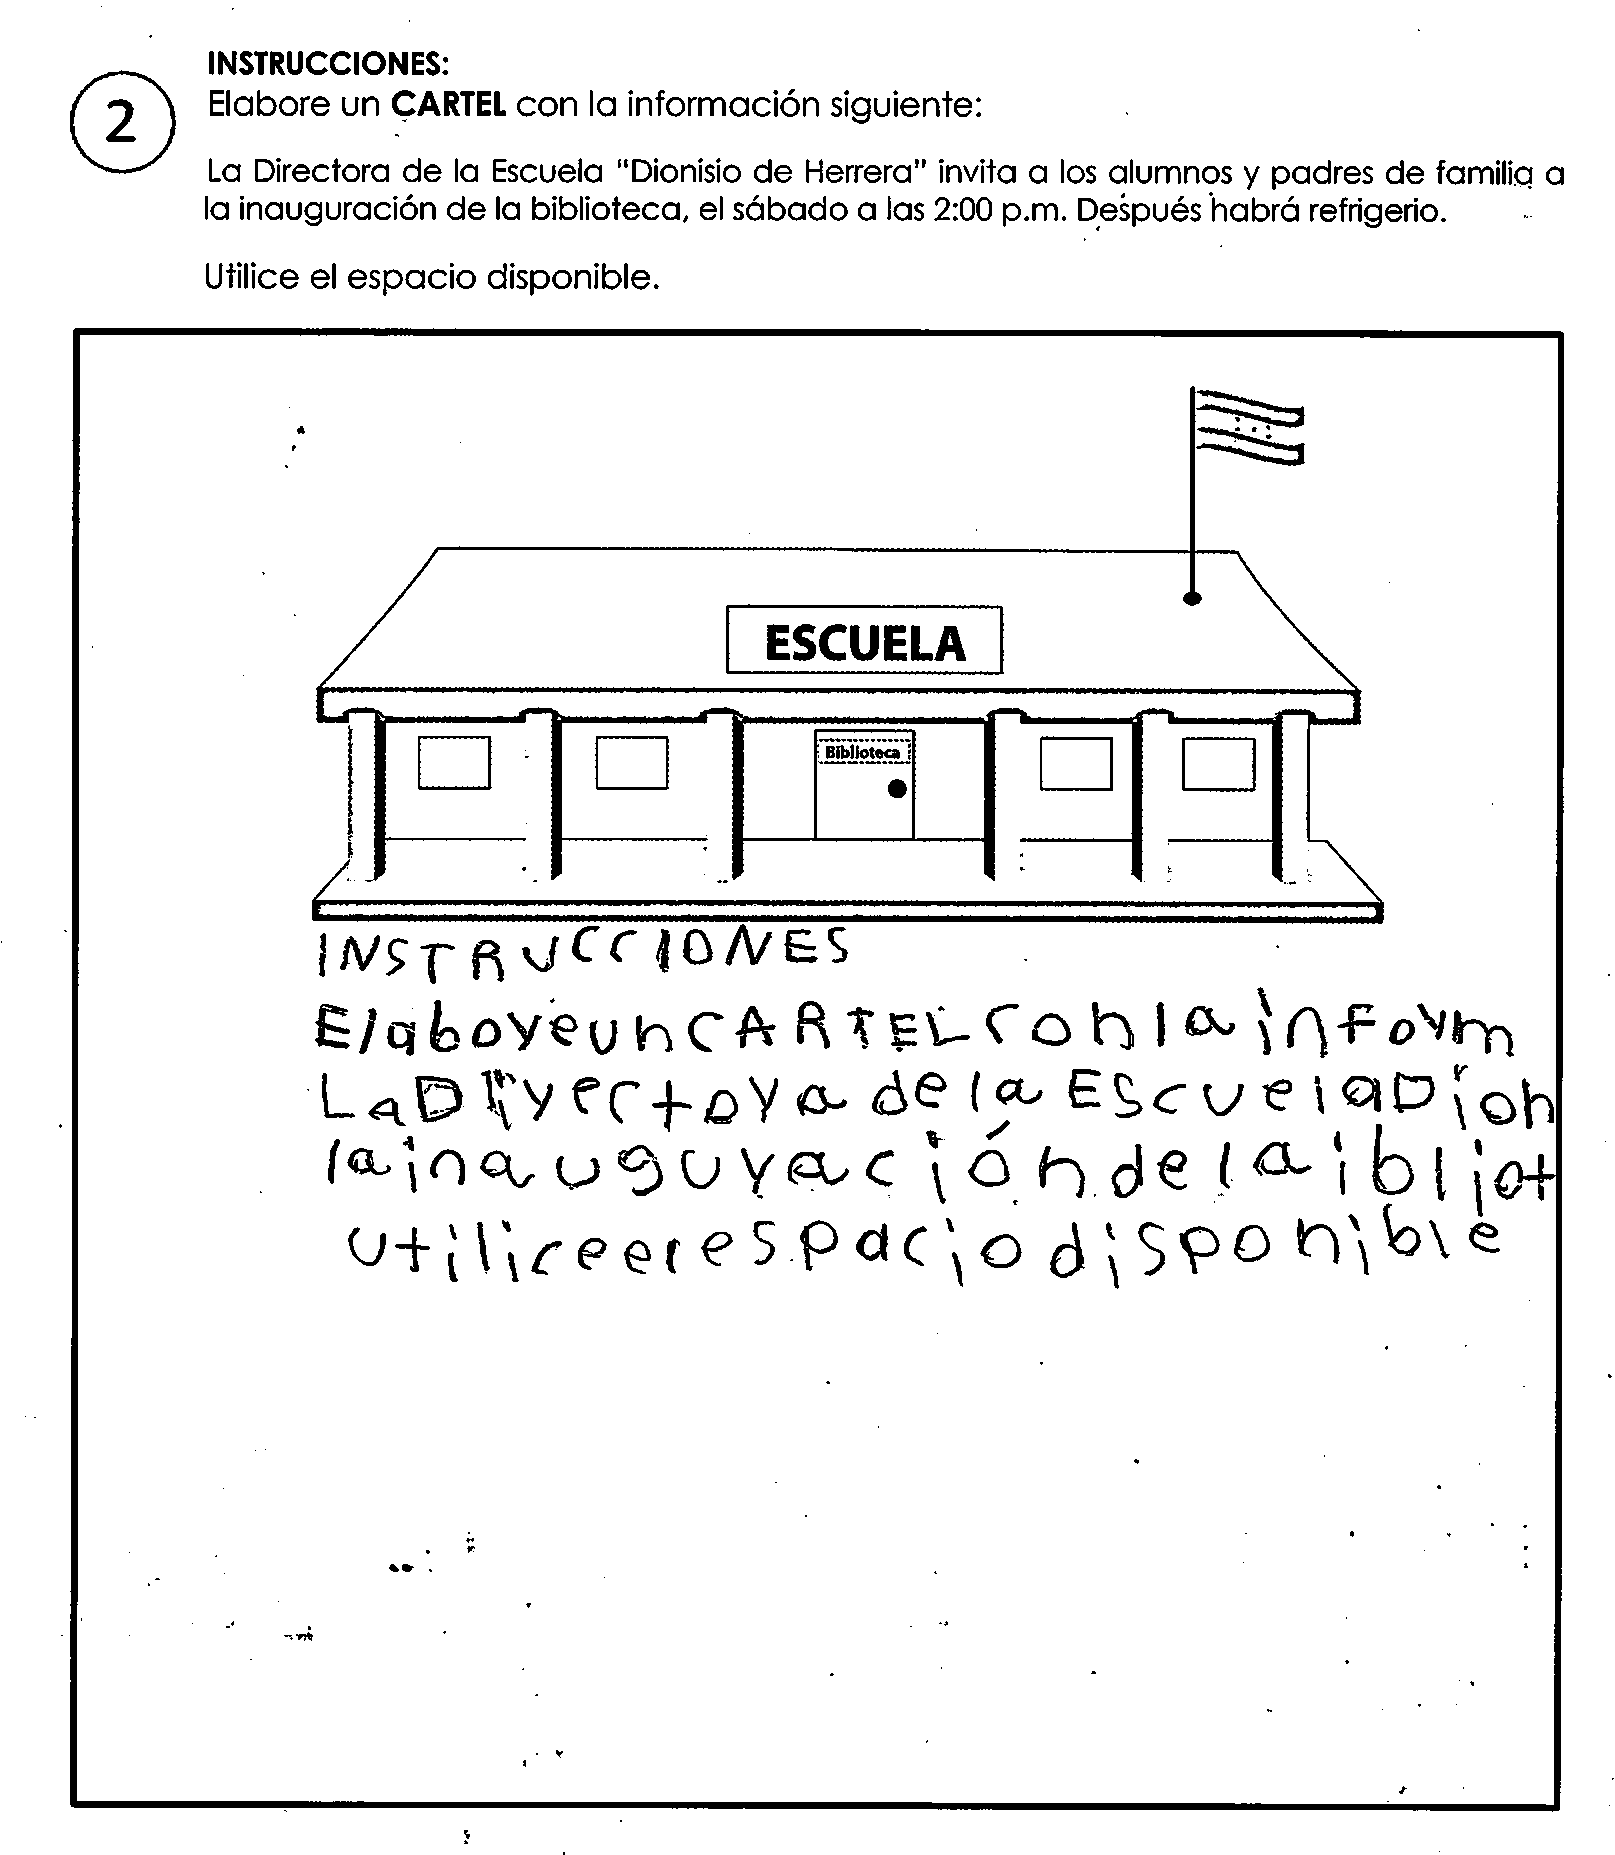 INSTRUCCIONES:
2
Elabore un CARTEL con la información siguiente:
La Directora de la Escuela "Dionisio de Herrera" invita a los alumnos y padres de familia a
la inauguración de la biblioteca, el sábado a las 2:00 p.m. Después habrá refrigerio.
Utilice el espacio disponible.
ESCUELA
Biblioteca
INSTRUCCIONES
Elaboreun CARTEL conla inform
La Directora de la EScuela Dion
la inauguración de la ibliot
utiliceerespacio disponible